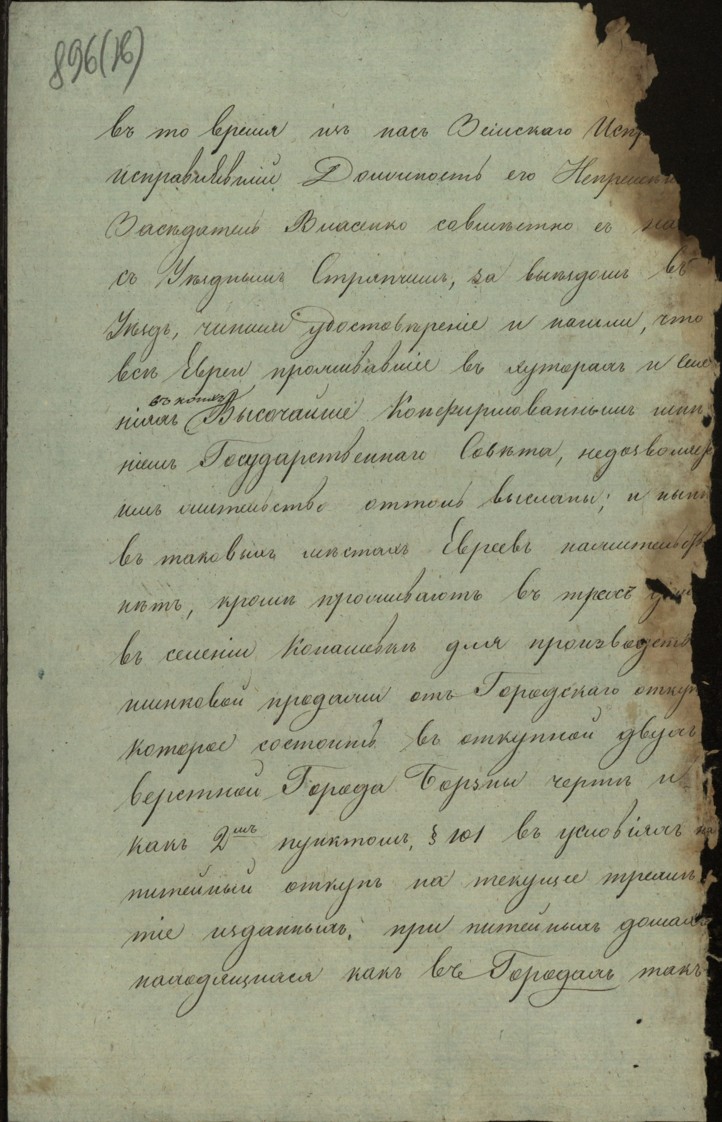 896(16)
въ то время изъ насъ Земскаго Испр
исправлявшій Должность его Непремѣн
Засѣдатель Власенко совмѣстно съ на
съ Уѣзднымъ Стряпчимъ, за выѣздомъ въ
Уѣздъ, чинили удостовѣреніе и нашли, что
всѣ Евреи проживавшіе въ хуторахъ и селе
въ коихъ
ніяхъ Высочайше Конфирмованнымъ мнѣ
ніемъ Государственнаго Совѣта, недозволяе
имъ жительство оттоль высланы; и нынѣ
въ таковыхъ мѣстахъ Евреевъ нажительств
нѣтъ, кромѣ проживаютъ въ трехъ
въ селеніи Конашевкѣ для производств
шинковой продажи отъ Городскаго откуп
которое состоитъ въ откупной двухъ
верстной Города Борзны чертѣ и
какъ 2мъ пунктомъ, § 101 въ условіяхъ на
питейный откупъ на текущее трехлѣ
тіе изданныхъ, при питейныхъ домахъ
находящихся какъ въ Городахъ такъ